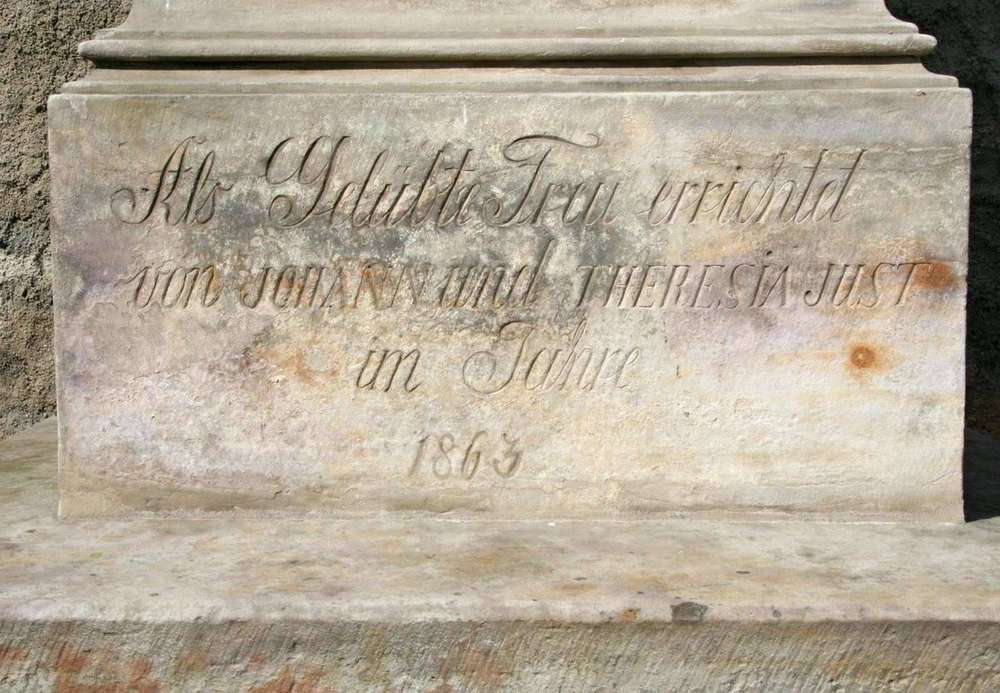 Als Gelübte Treu errichtd
von JOHANN und THERESIA JUST
im Jahre
1863